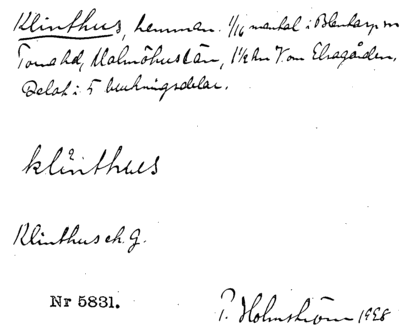 Klinthus, hemman. 1/16 mantal i Blentarp sn
Torna hd, Malmöhus län, 1½ km V om Elsagården,
Delat i 5 brukningsdelar.
klinthus
Klinthus ch. G.
Nr 5831.
P. Holmström 1928